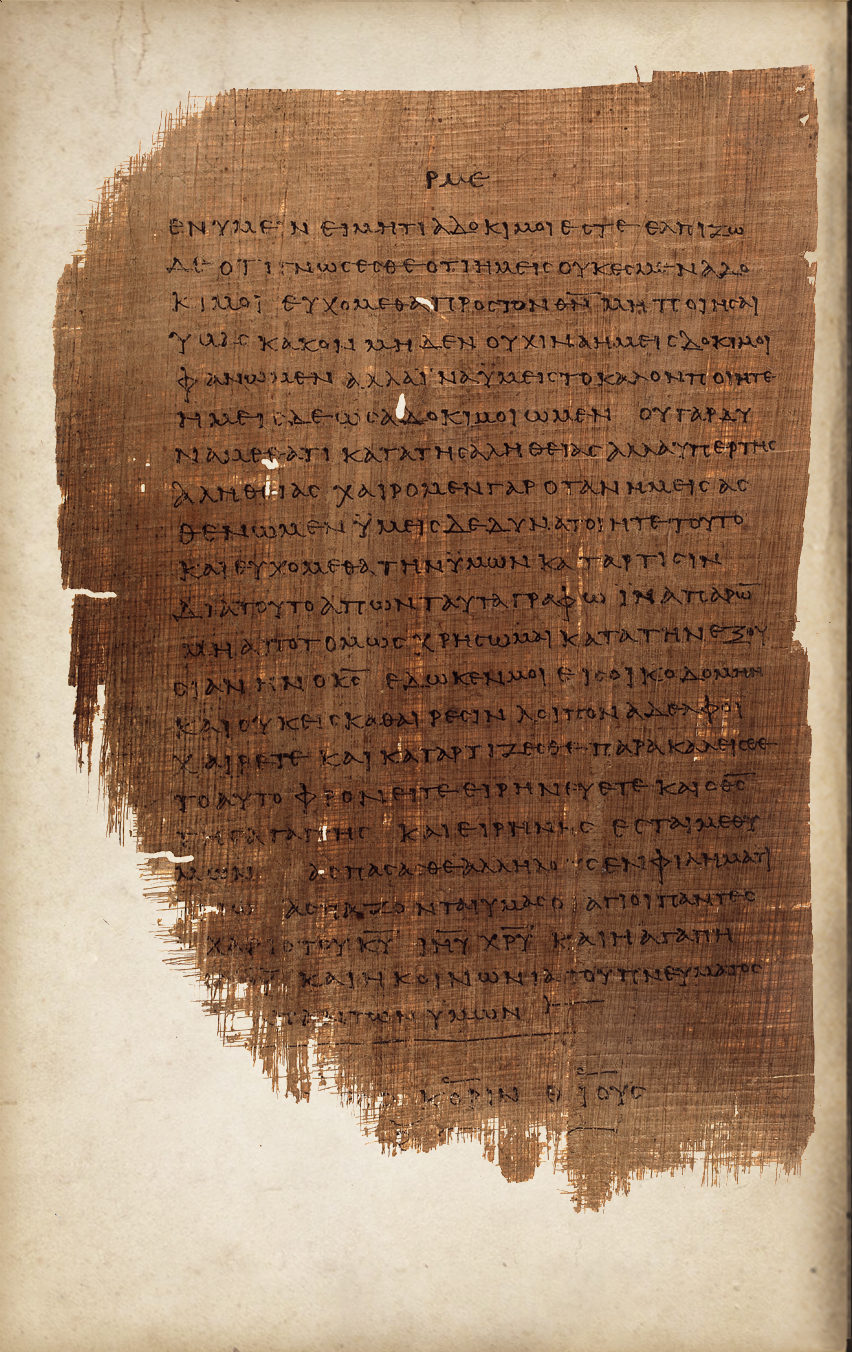 ΡΜΕ
ΕΝ ΥΜΕΙΝ ΕΙ ΜΗΤΙ ΑΔΟΚΙΜΟΙ ΕСΤΕ ΕΛΠΙΖΩ
ΔΕ ΟΤΙ ΓΝΩСΕСΘΕ ΟΤΙ ΗΜΕΙС ΟΥΚ ΕСΜΕΝ ΑΔΟ
ΚΙΜΟΙ ΕΥΧΟΜΕΘΑ ΠΡΟС ΤΟΝ Θ̅Ν̅ ΜΗ ΠΟΙΗСΑΙ
ΥΜΑС ΚΑΚΟΝ ΜΗΔΕΝ ΟΥΧ ΙΝΑ ΗΜΕΙС ΔΟΚΙΜΟΙ
ΦΑΝΩΜΕΝ ΑΛΛ ΑΪΝΑ ΫΜΕΙС ΤΟ ΚΑΛΟΝ ΠΟΙΗΤΕ
ΗΜΕΙС ΔΕ ΩС ΑΔΟΚΙΜΟΙ ΩΜΕΝ ΟΥ ΓΑΡ ΔΥ
ΝΑΜΕΘΑ ΤΙ ΚΑΤΑ ΤΗС ΑΛΗΘΕΙΑС ΑΛΛΑ ΫΠΕΡ ΤΗС
ΑΛΗΘΕΙΑС ΧΑΙΡΟΜΕΝ ΓΑΡ ΟΤΑΝ ΗΜΕΙС ΑС
ΘΕΝΩΜΕΝ ΫΜΕΙС ΔΕ ΔΥΝΑΤΟΙ ΗΤΕ ΤΟΥΤΟ
ΚΑΙ ΕΥΧΟΜΕΘΑ ΤΗΝ ΫΜΩΝ ΚΑΤΑΡΤΙСΙΝ
ΔΙΑ ΤΟΥΤΟ ΑΠΩΝ ΤΑΥΤΑ ΓΡΑΦΩ ΙΝΑ ΠΑΡΩ̅
ΜΗ ΑΠΟΤΟΜΩС ΧΡΗСΩΜΑΙ ΚΑΤΑ ΤΗΝ ΕΞΟΥ
СΙΑΝ ΗΝ Ο Κ̅С̅ ΕΔΩΚΕΝ ΜΟΙ ΕΙС ΟΙΚΟΔΟΜΗΝ
ΚΑΙ ΟΥΚ ΕΙС ΚΑΘΑΙΡΕСΙΝ ΛΟΙΠΟΝ ΑΔΕΛΦΟΙ
ΧΑΙΡΕΤΕ ΚΑΙ ΚΑΤΑΡΤΙΖΕСΘΕ ΠΑΡΑΚΑΛΕΙСΘΕ
ΤΟ ΑΥΤΟ ΦΡΟΝΕΙΤΕ ΕΙΡΗΝΕΥΕΤΕ ΚΑΙ Ο Θ̅С̅
ΤΗС ΑΓΑΠΗС ΚΑΙ ΕΙΡΗΝΗС ΕСΤΑΙ ΜΕΘ Υ
ΜΩΝ ΑСΠΑСΑСΘΕ ΑΛΛΗΛΟΥС ΕΝ ΦΙΛΗΜΑΤΙ
ΑСΠΑΖΟΝΤΑΙ ΥΜΑС ΟΙ ΑΓΙΟΙ ΠΑΝΤΕС
ΧΑΡΙС ΤΟΥ Κ̅Υ̅ Ι̅Η̅Υ̅ Χ̅Ρ̅Υ̅ ΚΑΙ Η ΑΓΑΠΗ
ΚΑΙ Η ΚΟΙΝΩΝΙΑ ΤΟΥ ΠΝΕΥΜΑΤΟС
ΠΑΝΤΩΝ ΥΜΩΝ
ΚΟΡΙΝΘΙΟΥС